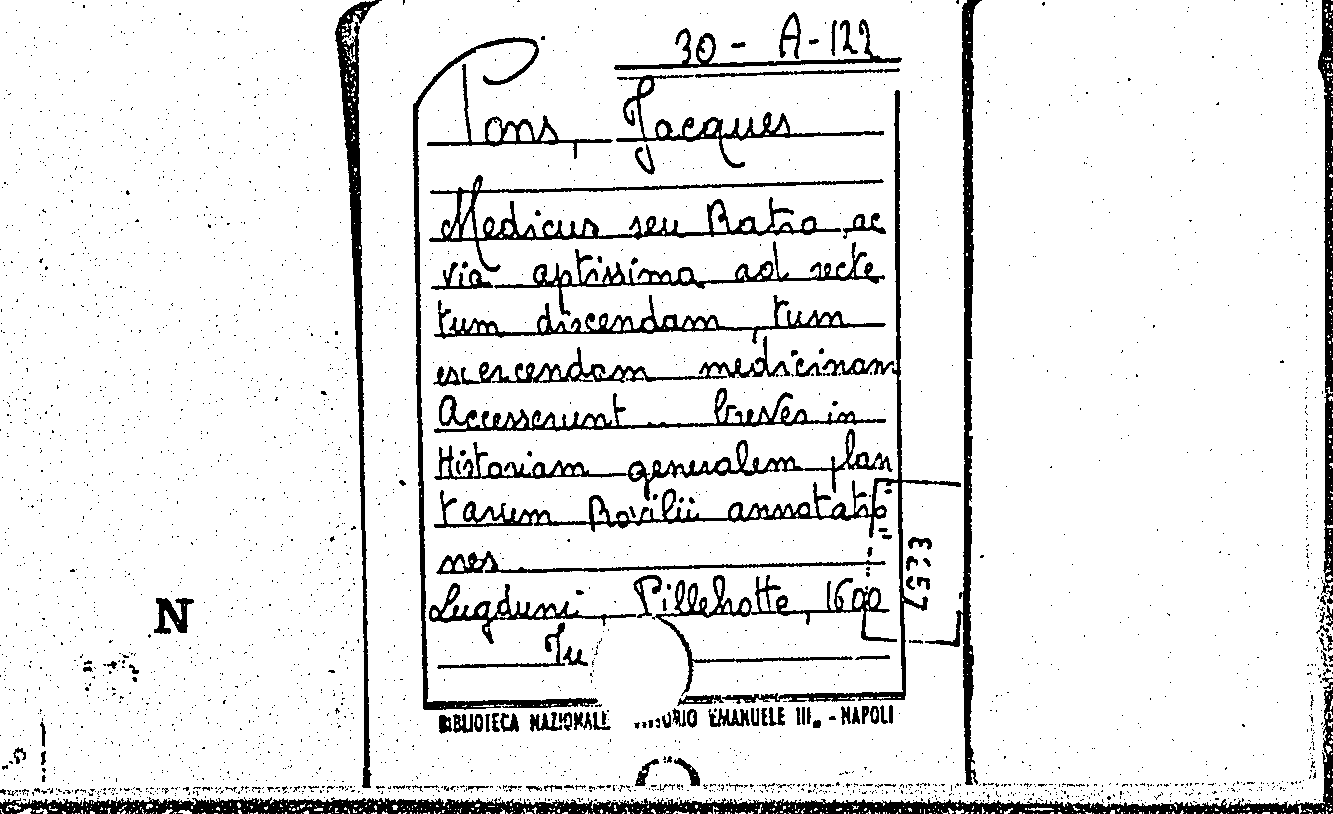 30 - A-122
Pons, Jacques
Medicus seu Ratio, ac
via aptissima ad recte
tum discendam, tum
excercendam medicinam
Accesserunt .. breves in
Historiam generalem plan
tarum Rovilii annotatio
nes.
Lugduni, Pillehotte, 1600
N
BIBLIOTECA NAZIONALE VITTORIO EMANUELE III. - NAPOLI